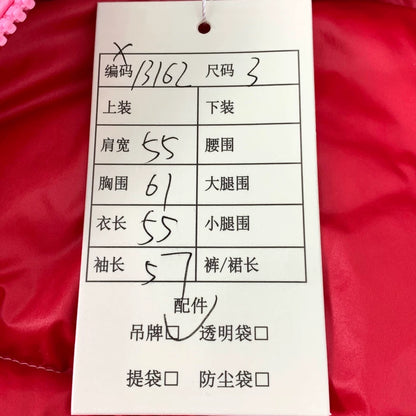 X
编码 13162 尺码 3
上装 下装
肩宽 55 腰围
胸围 61 大腿围
衣长 55 小腿围
袖长 57 裤/裙长
配件
吊牌□ 透明袋□
提袋□ 防尘袋□